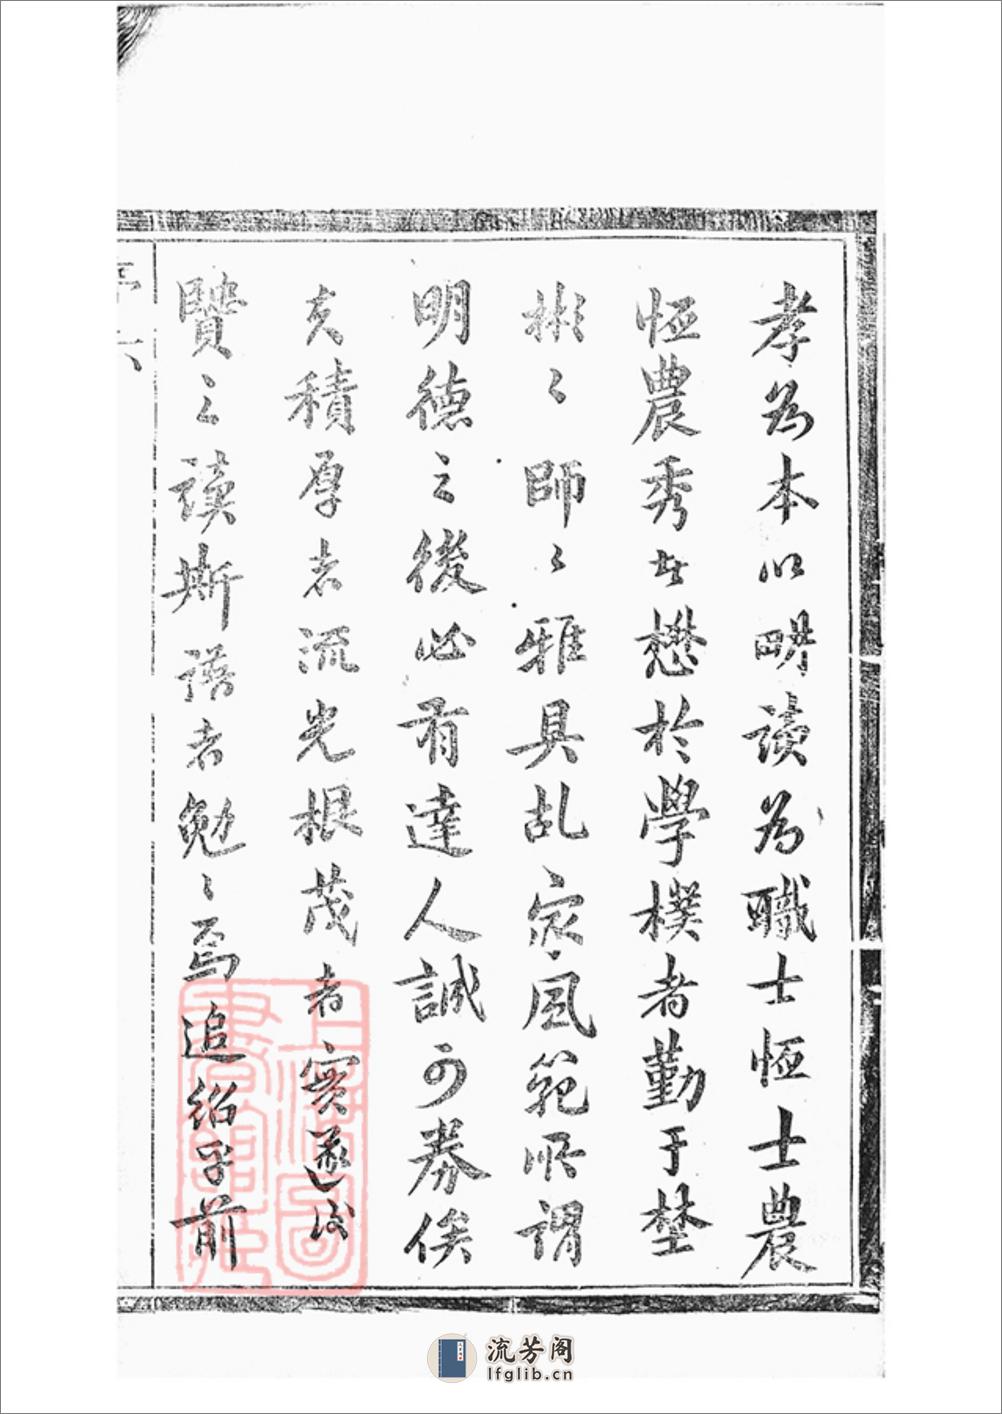 孝為本以畊讀為職士恒士農
恒農秀者懋於學樸者勤于埜
彬彬師師雅具故家風範所謂
明德之後必有達人誠可券俟
矣積厚者流光根茂者實遂
贊之讀斯譜者勉勉焉追紹乎前
序六
上海圖書館藏
流芳阁
lfglib.cn